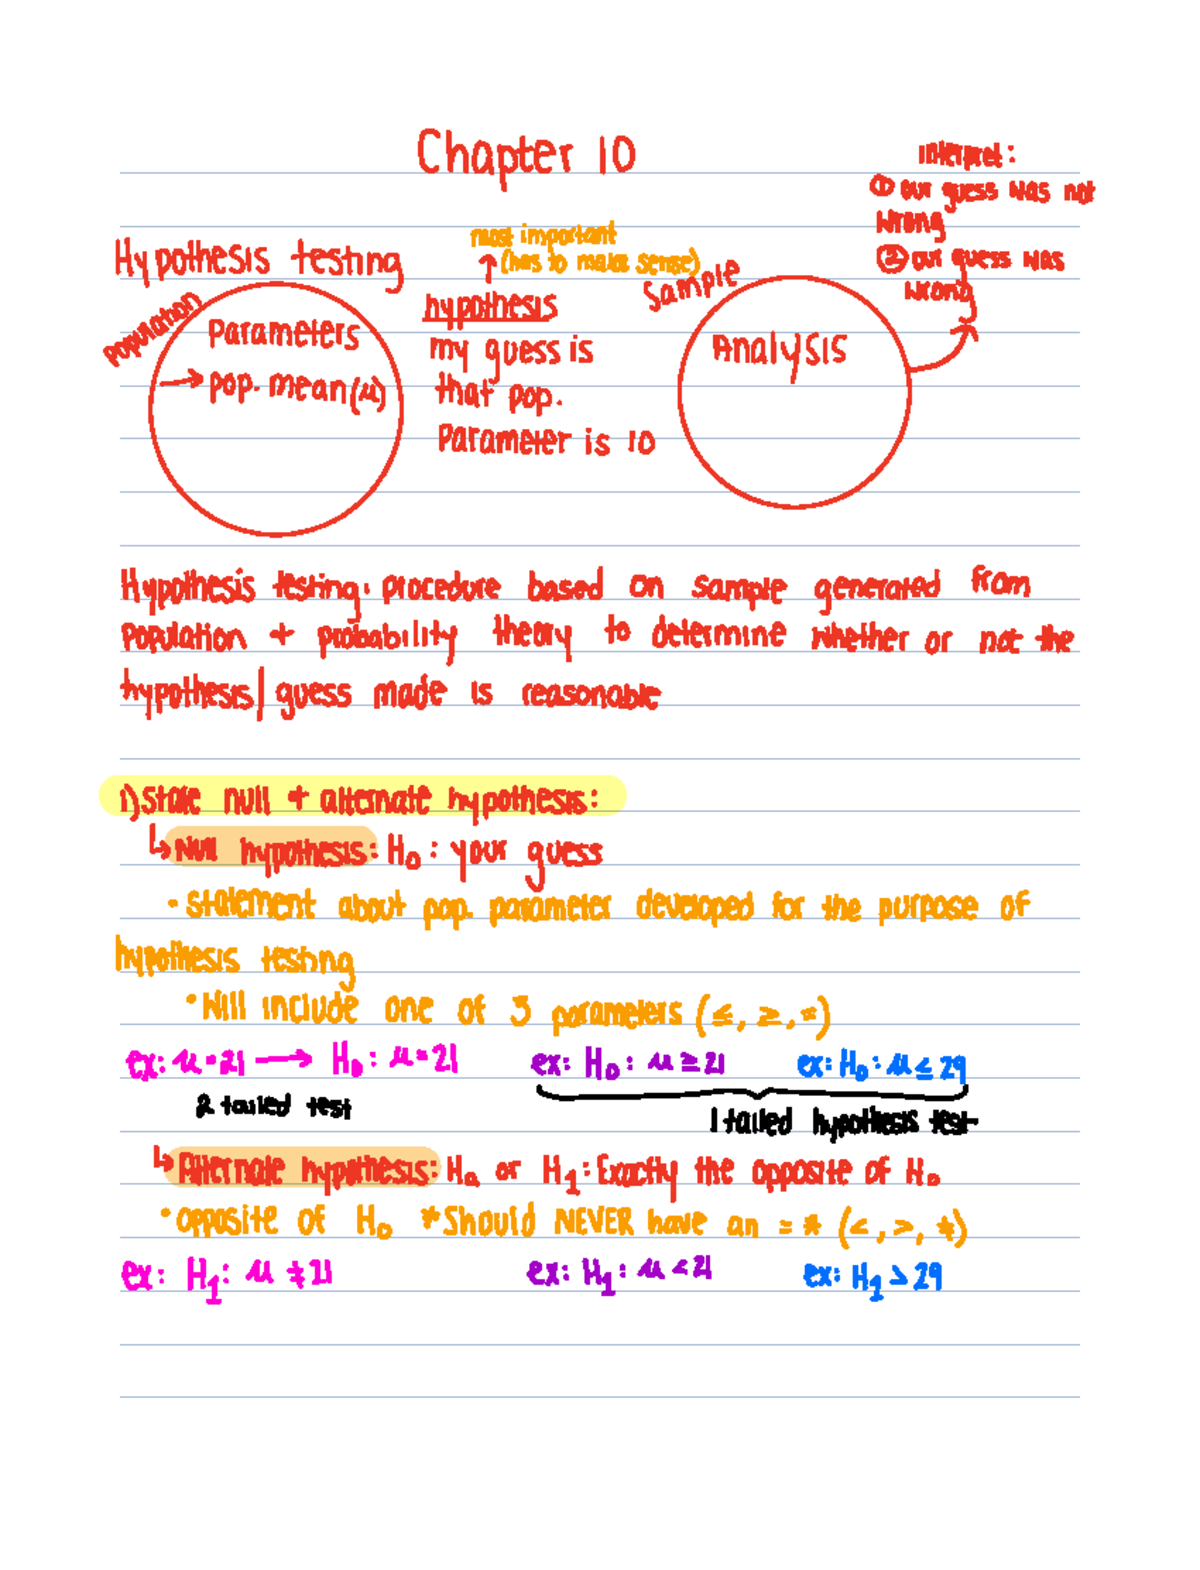 Chapter 10
Interpret:
① our guess was not
wrong
② our guess was
wrong
most important
(has to make sense)
Hypothesis testing
Population
Parameters
→ pop. mean (μ)
hypothesis
my guess is
that pop.
Parameter is 10
Sample
Analysis
Hypothesis testing: procedure based on sample generated from
population + probability theory to determine whether or not the
hypothesis/guess made is reasonable
1) State null + alternate hypothesis:
↳ Null hypothesis: H₀: your guess
- statement about pop. parameter developed for the purpose of
hypothesis testing
• Will include one of 3 parameters (≤, ≥, =)
ex: μ = 21 → H₀: μ = 21 ex: H₀: μ ≥ 21 ex: H₀: μ ≤ 29
2 tailed test
1 tailed hypothesis test
↳ Alternate hypothesis: Ha or H₁: Exactly the opposite of H₀
• opposite of H₀ *Should NEVER have an = * (<, >, ≠)
ex: H₁: μ ≠ 21 ex: H₁: μ < 21 ex: H₁ > 29